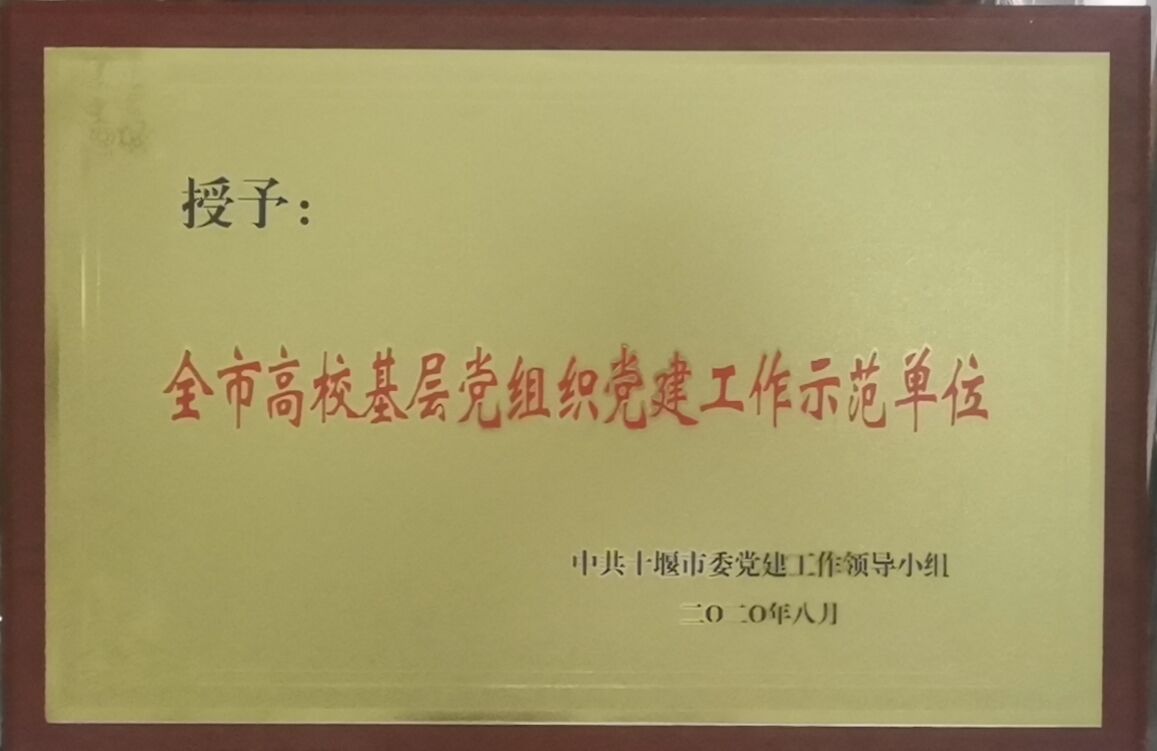 授予：
全市高校基层党组织党建工作示范单位
中共十堰市委党建工作领导小组
二〇二〇年八月